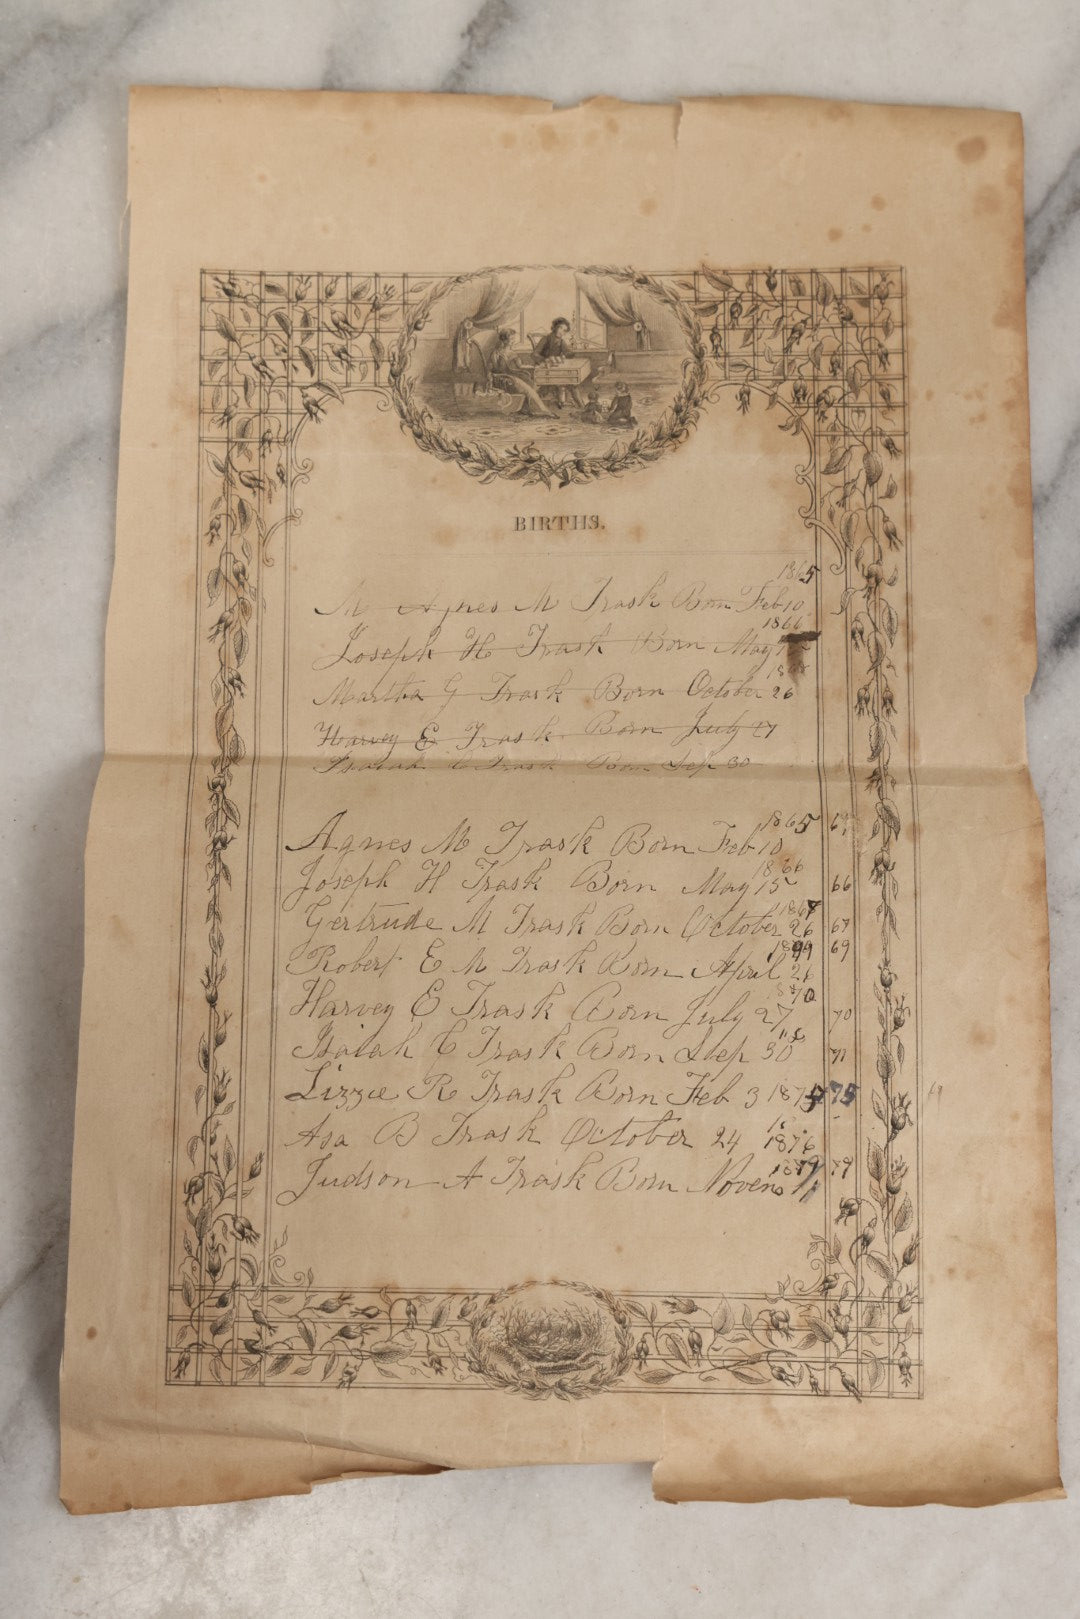 BIRTHS.
1865
M Agnes M Trask Born Feb 10
1866
Joseph H Trask Born May
Martha G Trask Born October 26
Harvey E Trask Born July 27
Isaiah C Trask Born Sep 30
1865
Agnes M Trask Born Feb 10
1866
Joseph H Trask Born May 15 66
1867
Gertrude M Trask Born October 26 67
69
Robert E M Trask Born April 26
1870
Harvey E Trask Born July 27 70
Isaiah C Trask Born Sep 30 71
Lizzie R Trask Born Feb 3 1875 75
Asa B Trask October 24 1876
1879 79
Judson A Trask Born Novem 11